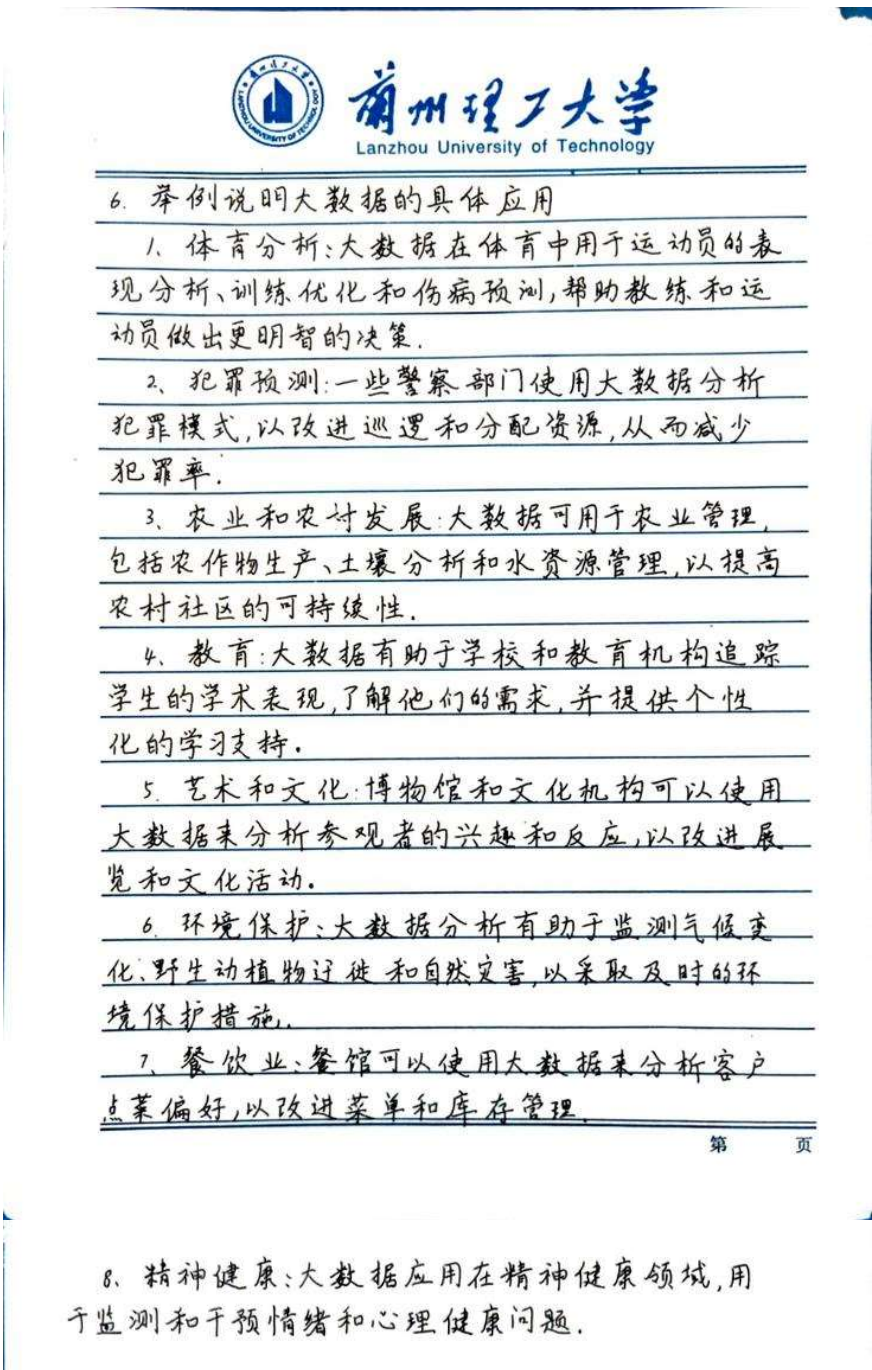 兰州理工大学
Lanzhou University of Technology
6. 举例说明大数据的具体应用
1、体育分析:大数据在体育中用于运动员的表
现分析、训练优化和伤病预测,帮助教练和运
动员做出更明智的决策.
2、犯罪预测:一些警察部门使用大数据分析
犯罪模式,以改进巡逻和分配资源,从而减少
犯罪率.
3、农业和农村发展:大数据可用于农业管理,
包括农作物生产、土壤分析和水资源管理,以提高
农村社区的可持续性.
4、教育:大数据有助于学校和教育机构追踪
学生的学术表现,了解他们的需求,并提供个性
化的学习支持.
5. 艺术和文化:博物馆和文化机构可以使用
大数据来分析参观者的兴趣和反应,以改进展
览和文化活动.
6. 环境保护:大数据分析有助于监测气候变
化、野生动植物迁徙和自然灾害,以采取及时的环
境保护措施.
7、餐饮业:餐馆可以使用大数据来分析客户
点菜偏好,以改进菜单和库存管理.
第 页
8、精神健康:大数据应用在精神健康领域,用
于监测和干预情绪和心理健康问题.